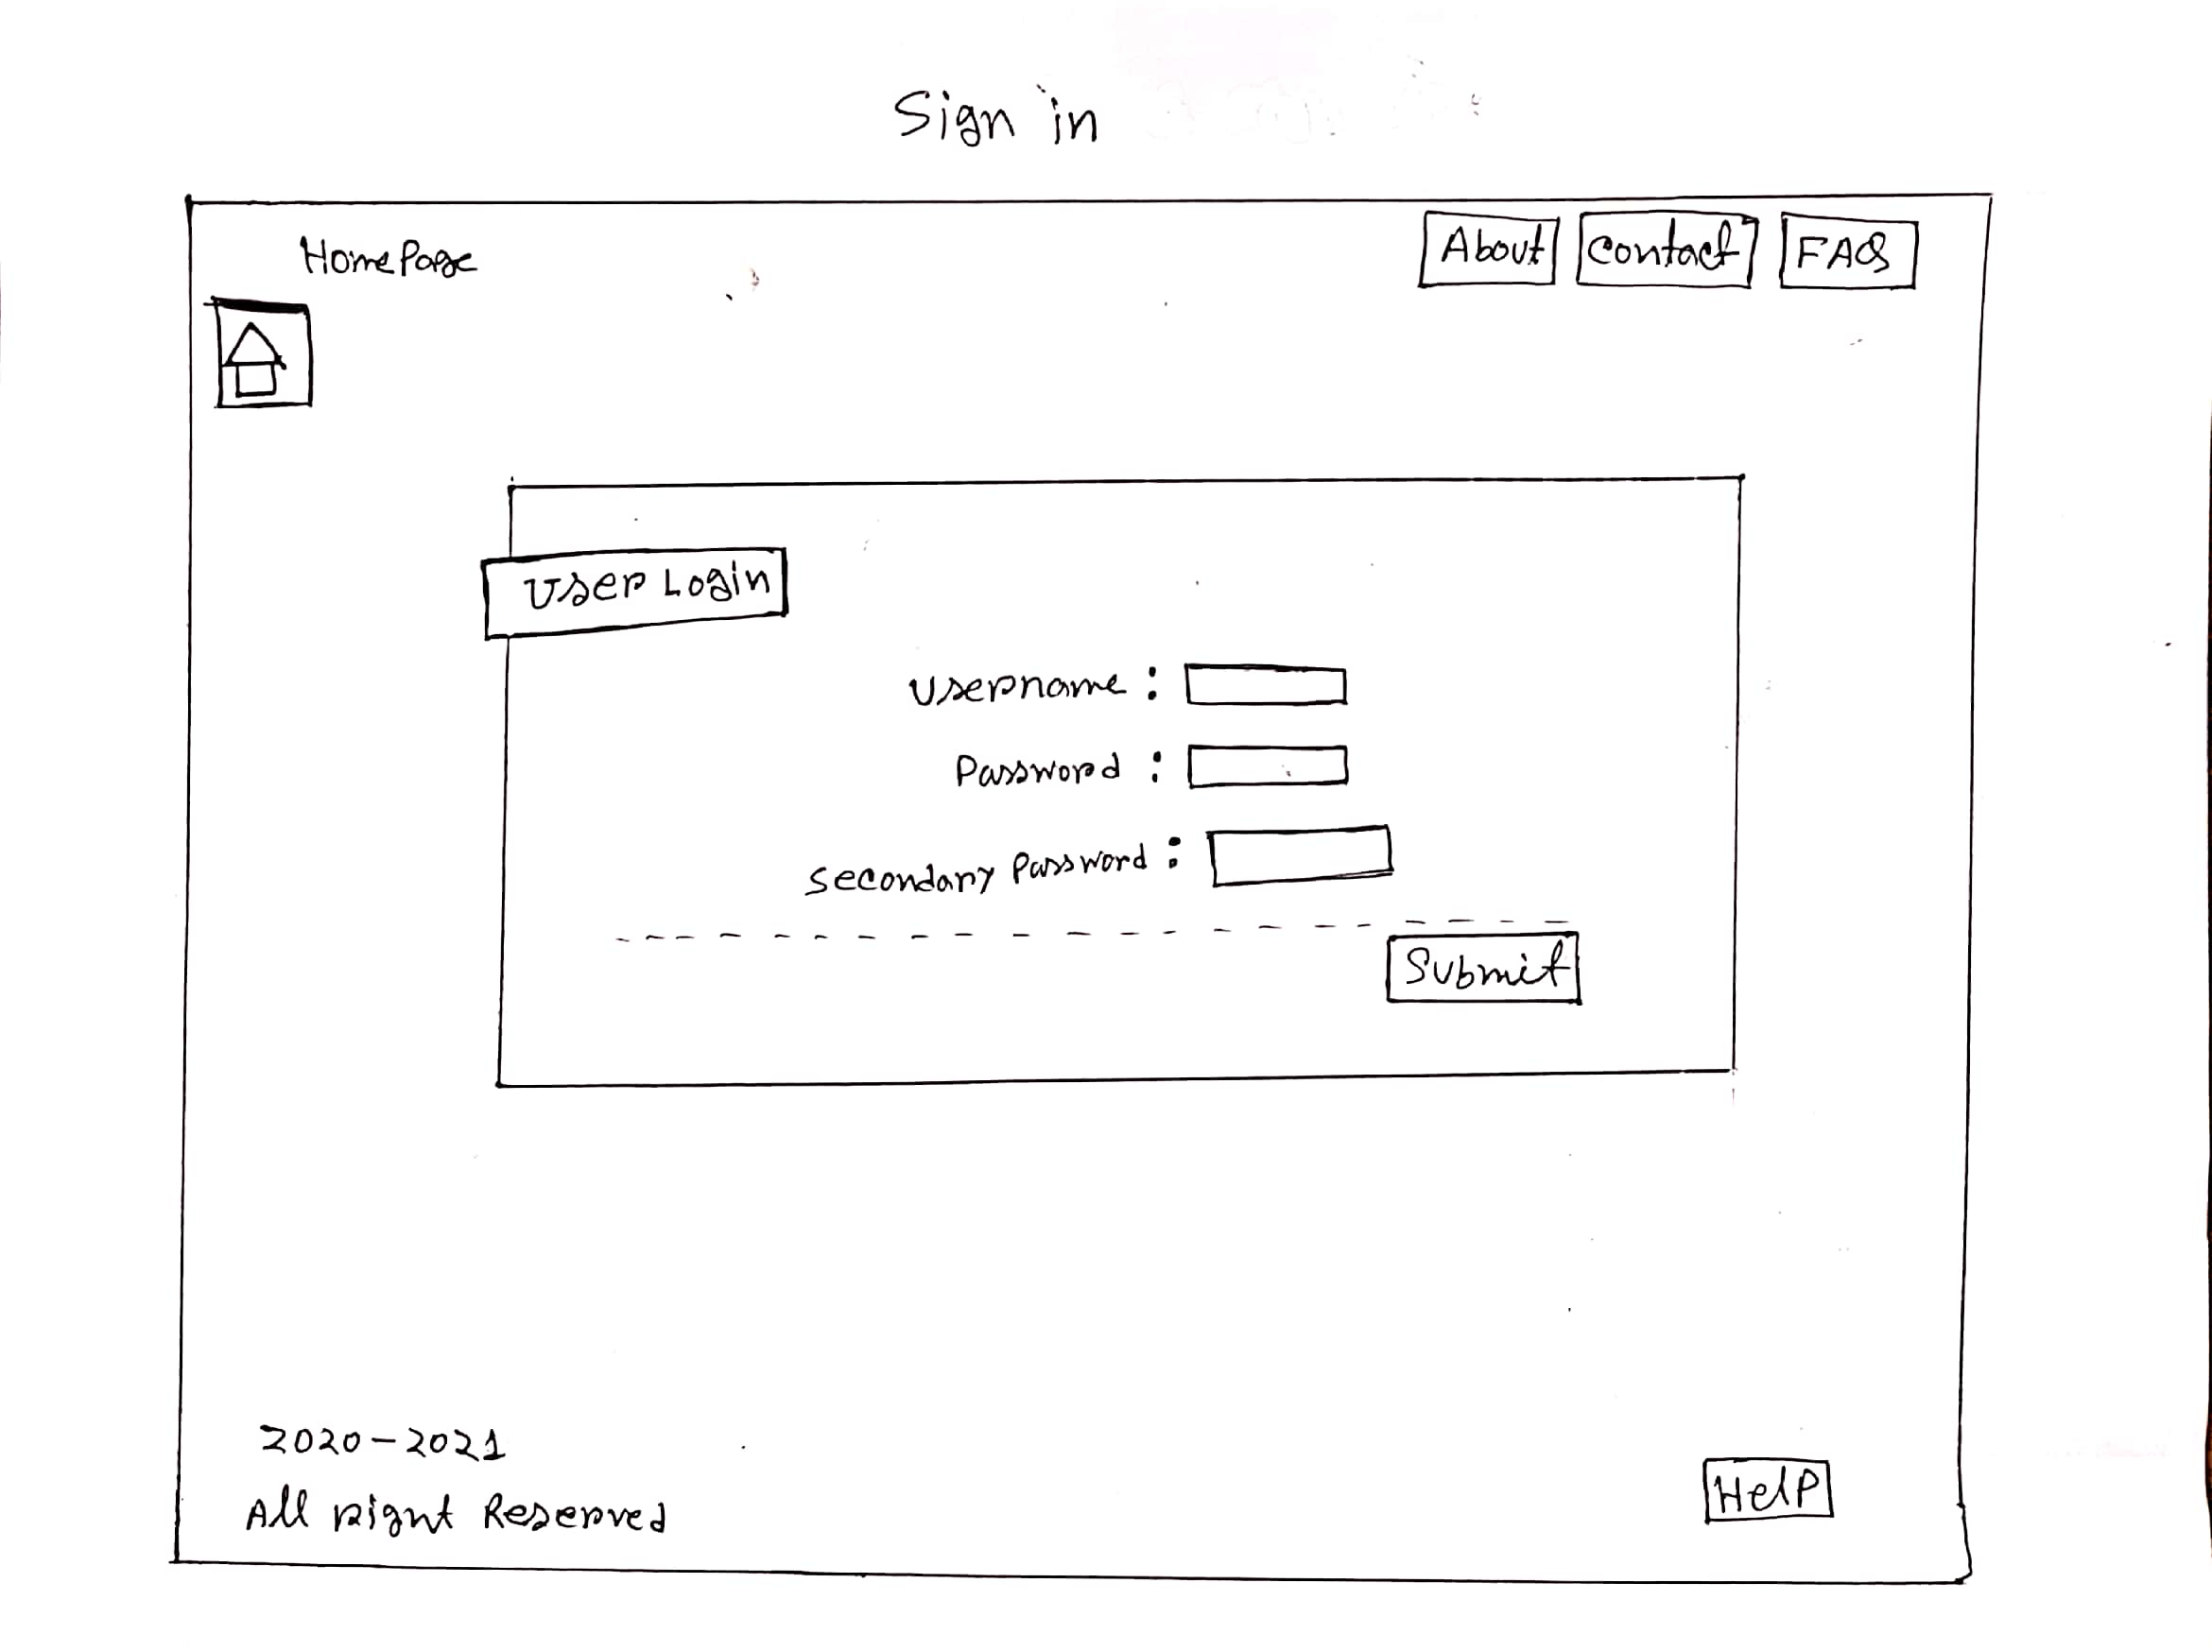 Sign in
HomePage
About
Contact
FAQ
User Login
Username :
Password :
Secondary Password :
Submit
2020-2021
All Right Reserved
Help